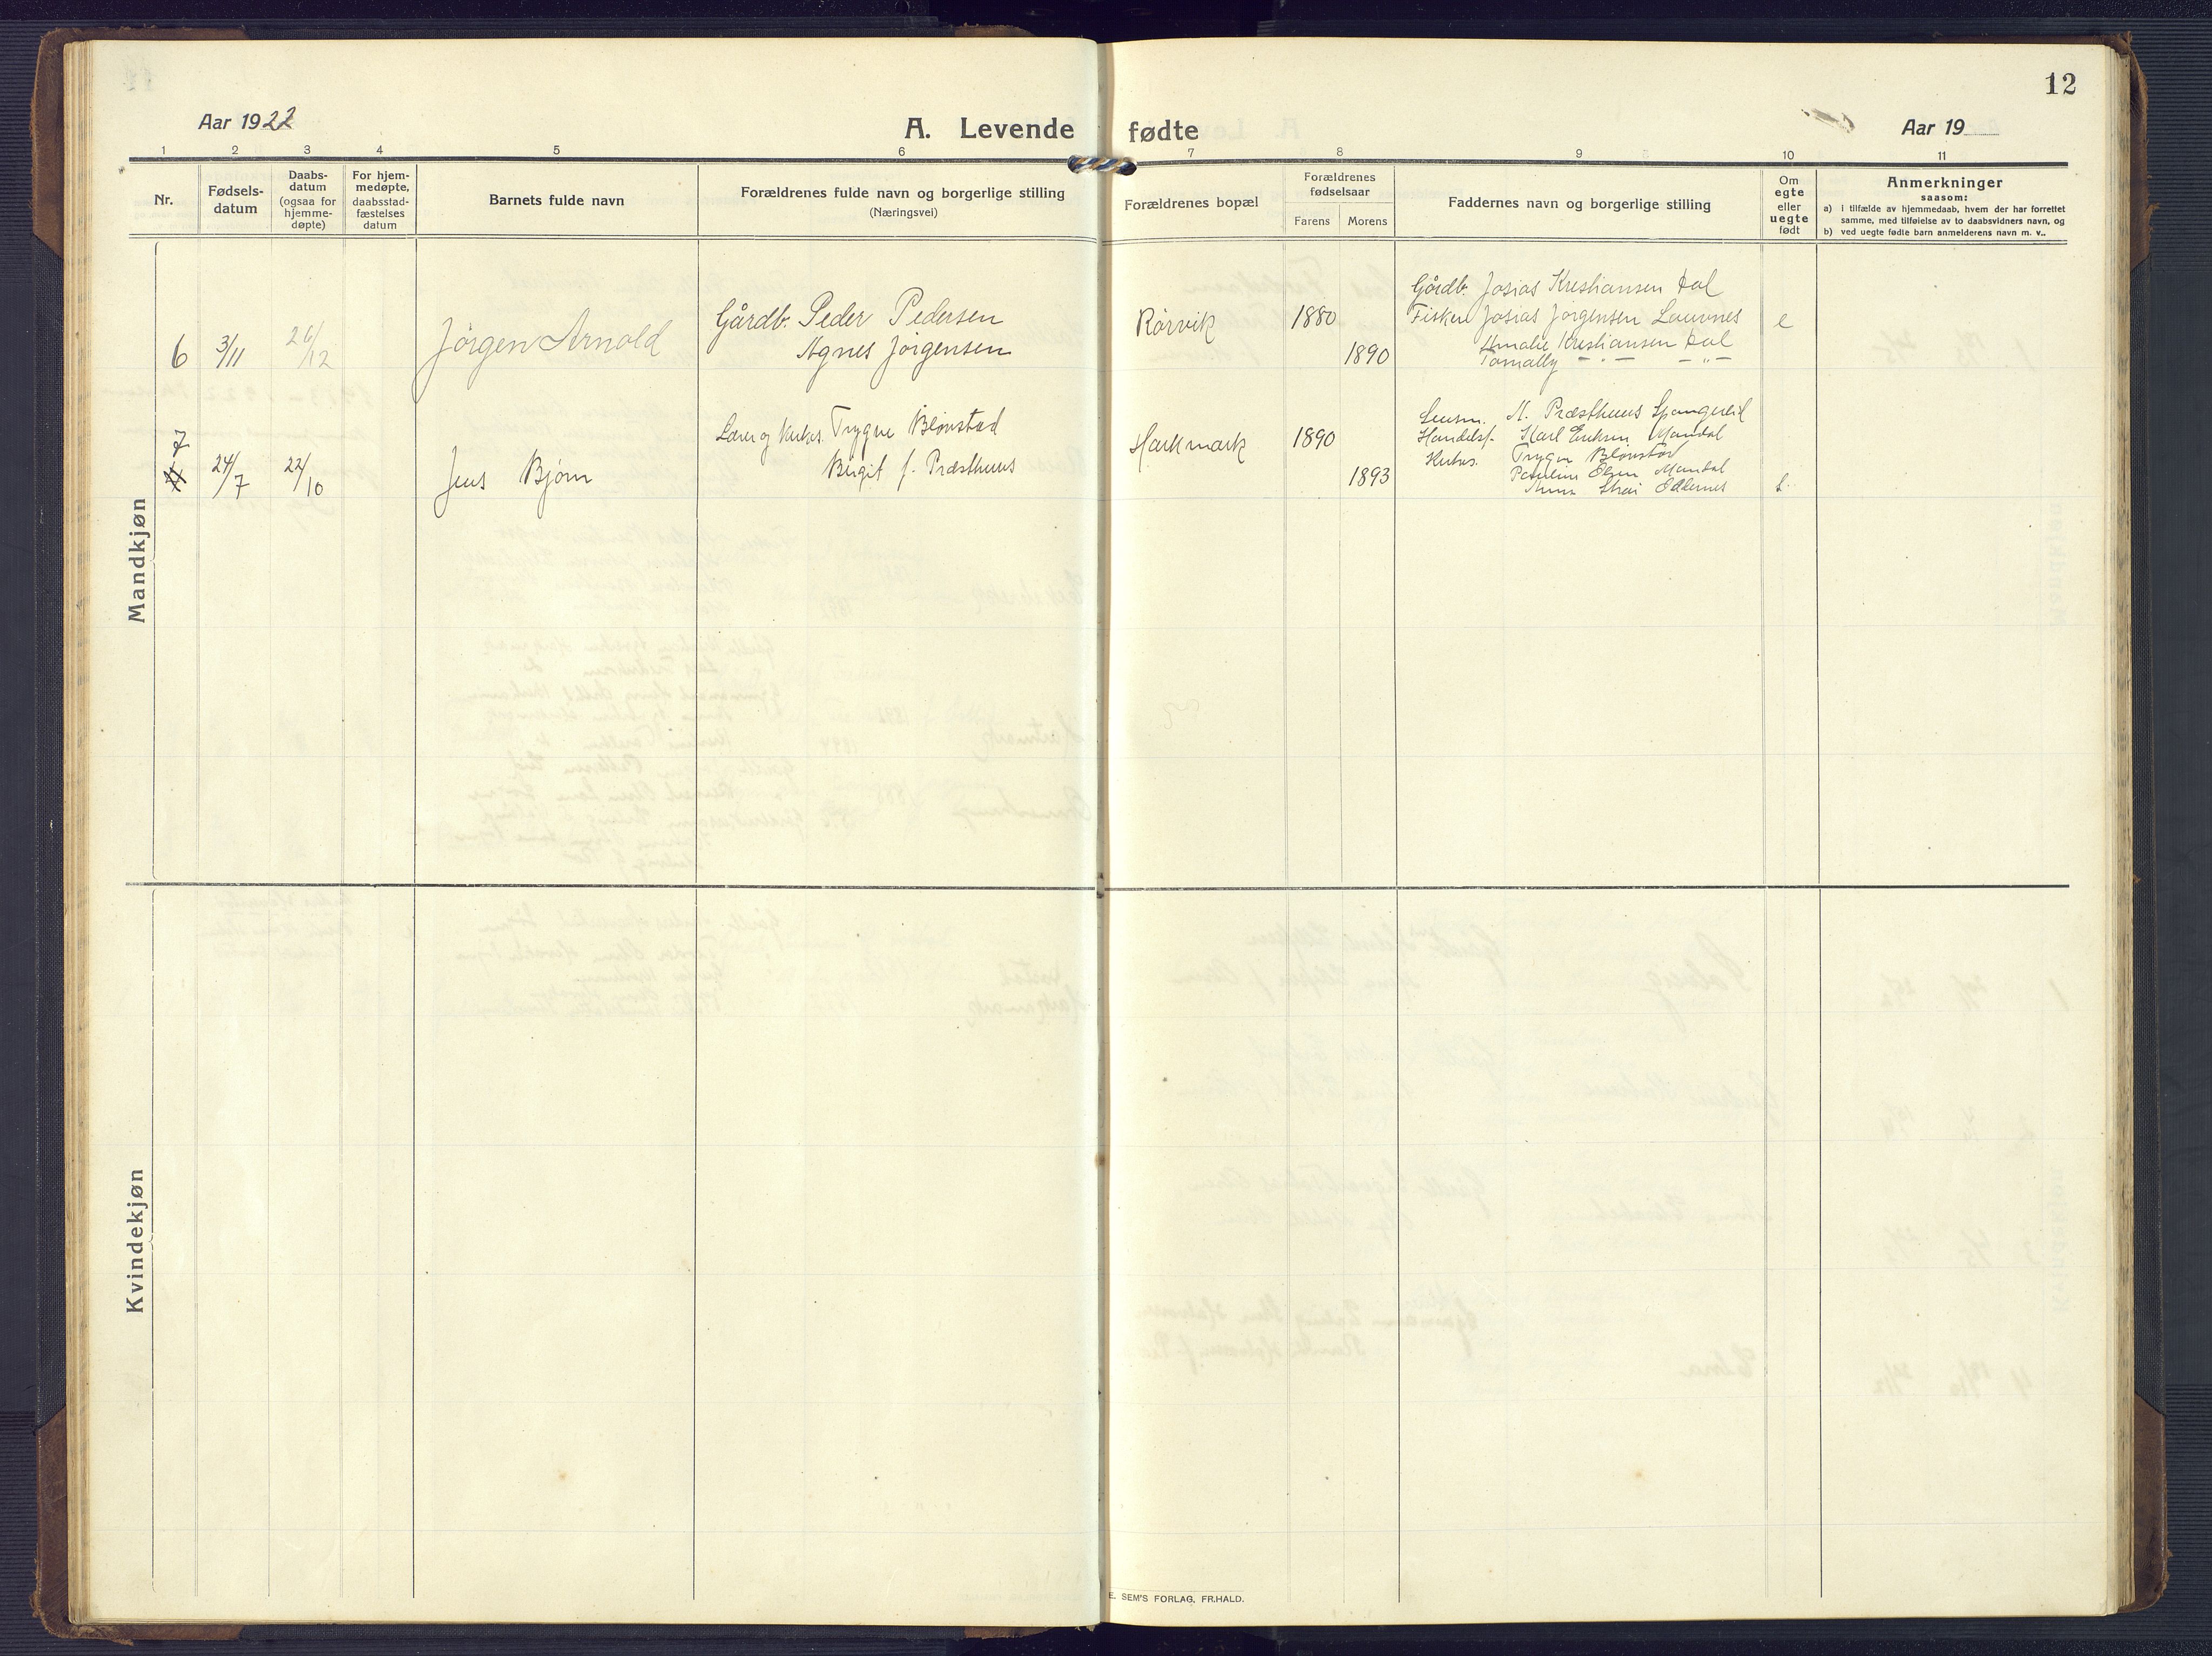 12
Aar 1922
A. Levende fødte
Aar 19
1 2 3 4 5 6 7 8 9 10 11
Nr.
Fødsels-
datum
Daabs-
datum
(ogsaa for
hjemme-
døpte)
For hjem-
medøpte,
daabsstad-
fæstelses
datum
Barnets fulde navn
Forældrenes fulde navn og borgerlige stilling
(Næringsvei)
Forældrenes bopæl
Forældrenes
fødselsaar
Farens Morens
Faddernes navn og borgerlige stilling
Om
egte
eller
uegte
født
Anmerkninger
saasom:
a) i tilfælde av hjemmedaab, hvem der har forrettet
samme, med tilføielse av to daabsvidners navn, og
b) ved uegte fødte barn anmelderens navn m. v..
Mandkjøn
6 3/11 26/12 Jörgen Arnold
Gårdb. Peder Pedersen
Agnes Jörgensen
Rörvik 1880
1890
Gårdb. Josias Kristiansen Dal
Fisker Josias Jörgensen Lauvnes
Amalie Kristiansen Dal
Tomally — " — — " —
e
7
24/7 22/10 Jens Bjørn
Lærer og Kirkes. Trygve Blönstad
Birgit f. Præsthuus
Harkmark 1890
1893
Lensm. A. Præsthuus Spangereid
Handelsf. Karl Eriksen Mandal
Kirkes. Trygve Blönstad
Pauline Olsen Mandal
Anna Oddernes
Kvindekjøn
E. SEM'S FORLAG, FR.HALD.